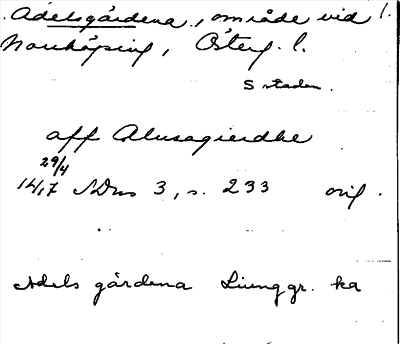 Adelsgårdena, område vid
Norrköping, Österg. l.
S staden.
aff Alusagierdhe
29/4
1417 SDns 3, s. 233 orig.
Adels gårdena Liunggr. ka